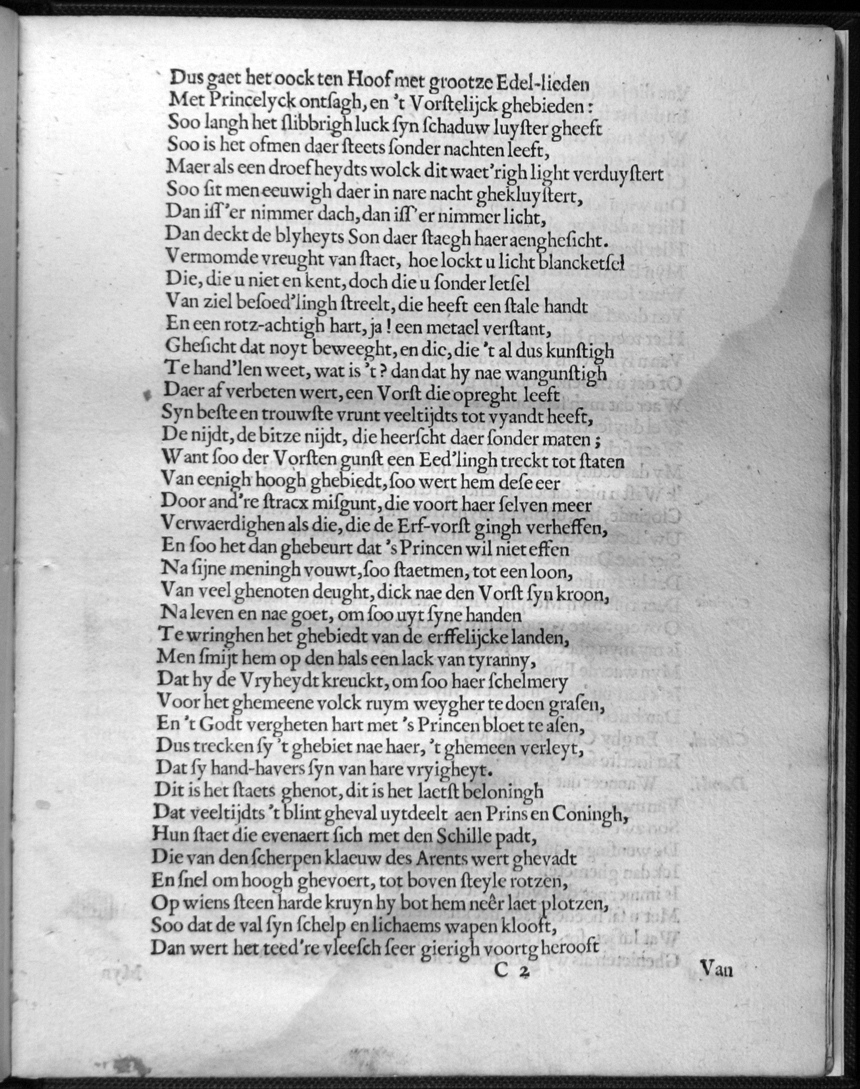 Dus gaet het oock ten Hoof met grootze Edel-lieden
Met Princelyck ontſagh, en 't Vorſtelijck ghebieden:
Soo langh het ſlibbrigh luck ſyn ſchaduw luyſter gheeft
Soo is het ofmen daer ſteets ſonder nachten leeft,
Maer als een droef heydts wolck dit waet'righ light verduyſtert
Soo ſit men eeuwigh daer in nare nacht ghekluyſtert,
Dan iſſ'er nimmer dach, dan iſſ'er nimmer licht,
Dan deckt de blyheyts Son daer ſtaegh haer aengheſicht.
Vermomde vreught van ſtaet, hoe lockt u licht blancketſel
Die, die u niet en kent, doch die u ſonder letſel
Van ziel beſoed'lingh ſtreelt, die heeft een ſtale handt
En een rotz-achtigh hart, ja! een metael verſtant,
Gheſicht dat noyt beweeght, en die, die 't al dus kunſtigh
Te hand'len weet, wat is 't? dan dat hy nae wangunſtigh
Daer af verbeten wert, een Vorſt die opreght leeft
Syn beſte en trouwſte vrunt veeltijdts tot vyandt heeft,
De nijdt, de bitze nijdt, die heerſcht daer ſonder maten;
Want ſoo der Vorſten gunſt een Eed'lingh treckt tot ſtaten
Van eenigh hoogh ghebiedt, ſoo wert hem deſe eer
Door and're ſtracx miſgunt, die voort haer ſelven meer
Verwaerdighen als die, die de Erf-vorſt gingh verheffen,
En ſoo het dan ghebeurt dat 's Princen wil niet effen
Na ſijne meningh vouwt, ſoo ſtaetmen, tot een loon,
Van veel ghenoten deught, dick nae den Vorſt ſyn kroon,
Na leven en nae goet, om ſoo uyt ſyne handen
Te wringhen het ghebiedt van de erffelijcke landen,
Men ſmijt hem op den hals een lack van tyranny,
Dat hy de Vryheydt kreuckt, om ſoo haer ſchelmery
Voor het ghemeene volck ruym weygher te doen graſen,
En 't Godt vergheten hart met 's Princen bloet te aſen,
Dus trecken ſy 't ghebiet nae haer, 't ghemeen verleyt,
Dat ſy hand-havers ſyn van hare vryigheyt.
Dit is het ſtaets ghenot, dit is het laetſt beloningh
Dat veeltijdts 't blint gheval uytdeelt aen Prins en Coningh,
Hun ſtaet die evenaert ſich met den Schille padt,
Die van den ſcherpen klaeuw des Arents wert ghevadt
En ſnel om hoogh ghevoert, tot boven ſteyle rotzen,
Op wiens ſteen harde kruyn hy bot hem neêr laet plotzen,
Soo dat de val ſyn ſchelp en lichaems wapen klooft,
Dan wert het teed're vleeſch ſeer gierigh voortgherooft
C 2 Van